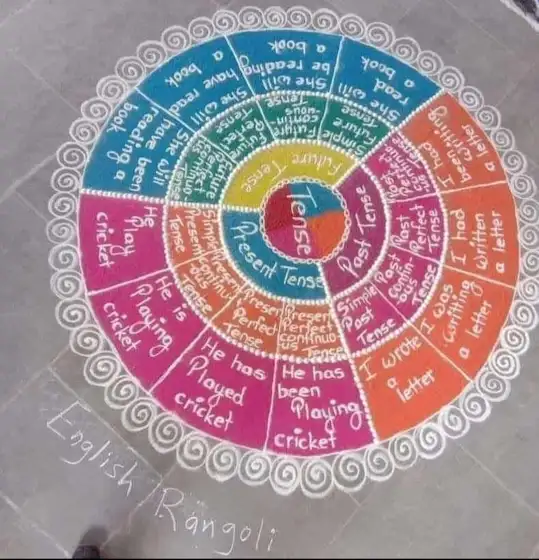 Tense
Present Tense
Past Tense
Future Tense
Simple
Present
Tense
Present
continuo
us
Tense
Present
Perfect
Tense
Present
Perfect
continuo
us Tense
Simple
Past
Tense
Past
contin
uous
Tense
Past
Perfect
Tense
Simple
Future
Tense
Future
contin
uous
Tense
Future
Perfect
Tense
He
Play
cricket
He is
Playing
cricket
He has
Played
cricket
He has
been
Playing
cricket
I wrote
a
letter
I was
writing
a letter
I had
written
a letter
I had
been writing
a letter
She will
read
a book
She will
be reading
a book
She will
have read
a book
She will
have been
reading a
book
English Rangoli